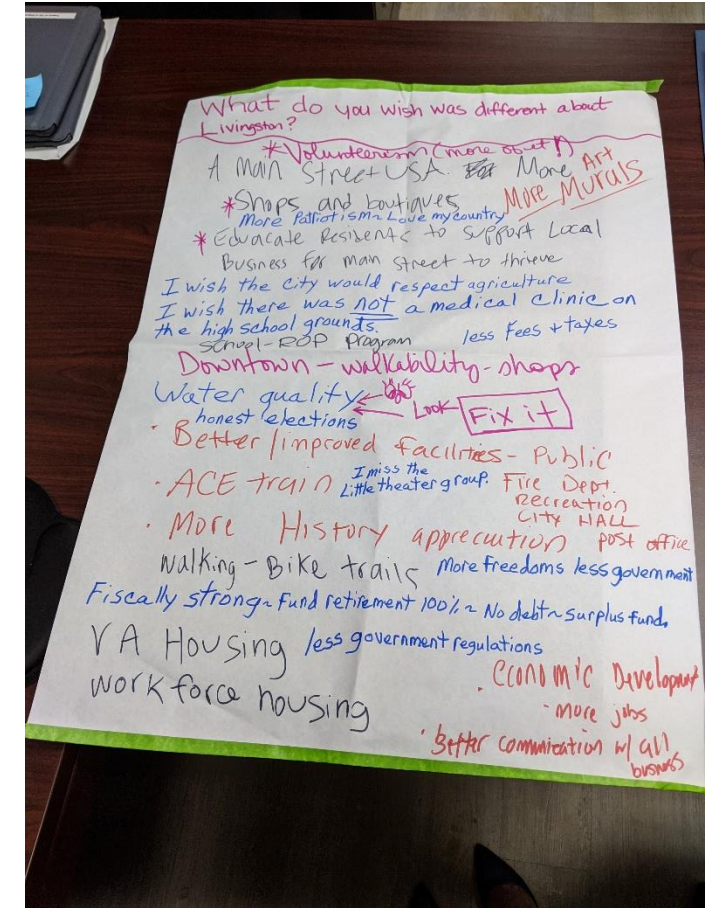 What do you wish was different about
Livingston?
*Volunteerism (more of it!)
A main Street USA. More Art
More Murals
*Shops and boutiques
More Patriotism ~ Love my country
* Educacate Residents to support Local
Business for main street to thrieve
I wish the city would respect agriculture
I wish there was not a medical clinic on
the high school grounds.
less Fees + taxes
School-ROP Program
Downtown - walkability - shops
Water quality
Look Fix it
honest elections
· Better/improved facilities - Public
Fire Dept.
Recreation
City HALL
post office
· ACE train
I miss the
Little theater group.
· More History appreciation
Walking - Bike trails
More Freedoms less government
Fiscally strong ~ Fund retirement 100% ~ No debt ~ surplus fund.
VA Housing
less government regulations
workforce housing
· Economic Development
- more jobs
· Better commication w/ all
business